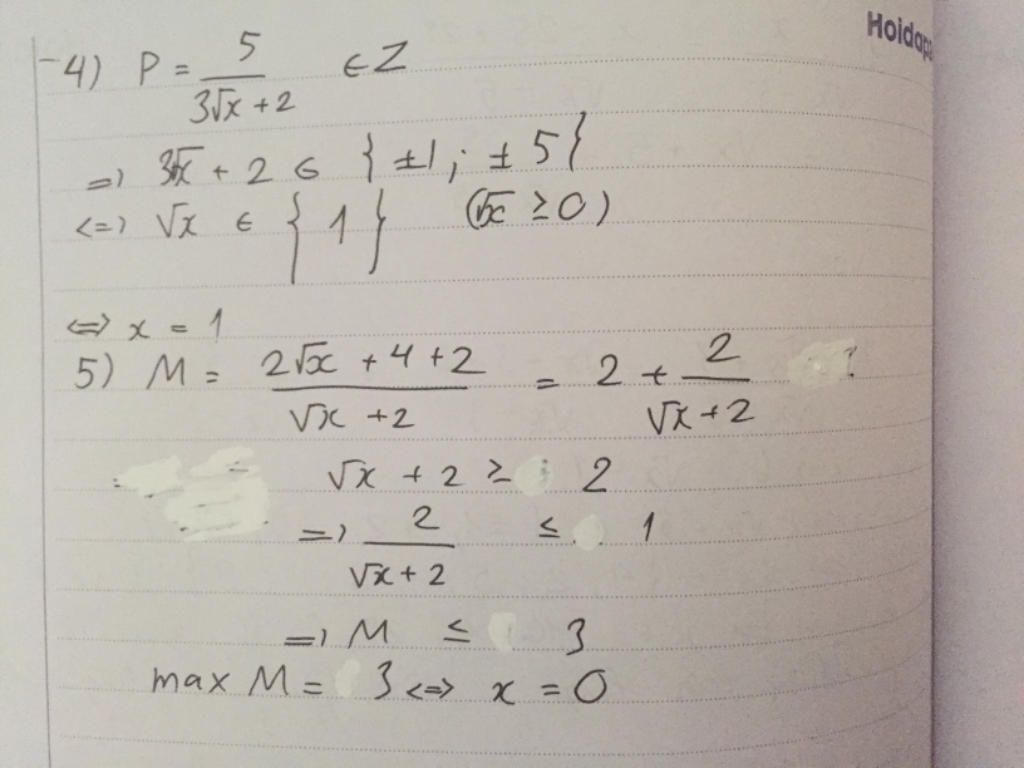 Hoidap
4) P = 5/(3√x + 2) ∈ Z
=> 3√x + 2 ∈ {±1; ±5}
<=> √x ∈ {1} (√x ≥ 0)
<=> x = 1
5) M = (2√x + 4 + 2)/(√x + 2) = 2 + 2/(√x + 2)
√x + 2 ≥ 2
=> 2/(√x + 2) ≤ 1
=> M ≤ 3
max M = 3 <=> x = 0